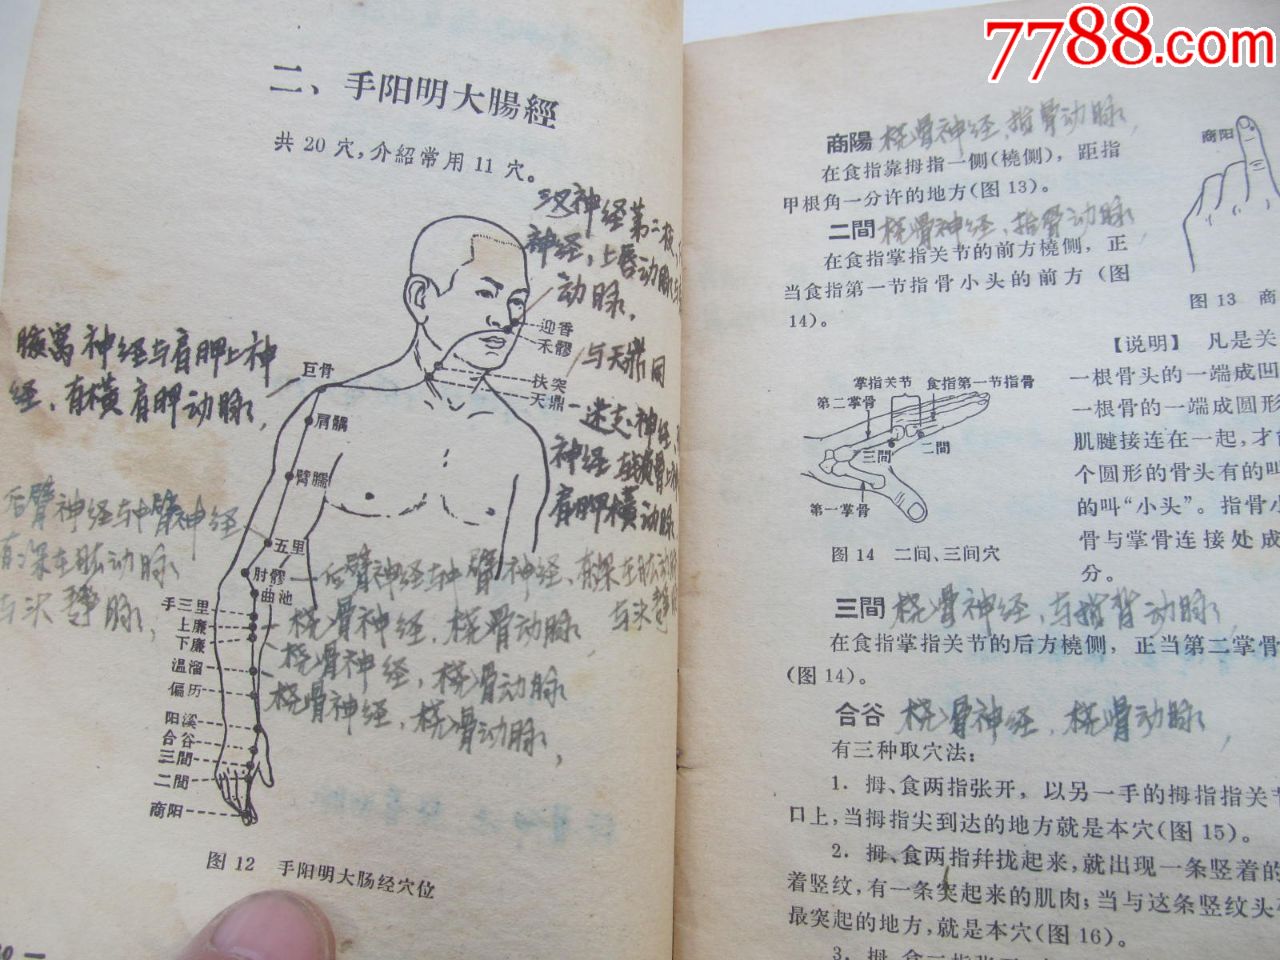 7788.com
二、手阳明大腸經
共20穴，介紹常用11穴。
三叉神经第二枝、
神经、上唇动脉
动脉，
腋窝神经与肩胛上神
经、有横肩胛动脉，
迎香
禾髎
与天鼎同
巨骨
扶突
天鼎
一迷走神经、
肩髃
神经
臂臑
肩胛横动脉
后臂神经与中臂神经
五里
动脉
肘髎
一后臂神经与中臂神经、有深在肱动
曲池
手三里
桡骨神经，桡骨动脉，
上廉
下廉
桡骨神经，桡骨动脉
温溜
桡骨神经，桡骨动脉，
偏历
阳溪
合谷
三間
二間
商阳
图 12 手阳明大肠经穴位
商陽 桡骨神经、指骨动脉，
在食指靠拇指一侧(橈侧)，距指
甲根角一分许的地方(图 13)。
二間 桡骨神经、指骨动脉，
在食指掌指关节的前方橈侧，正
当食指第一节指骨小头的前方 (图
14)。
商阳
图 13 商
掌指关节 食指第一节指骨
第二掌骨
三間
二間
第一掌骨
图 14 二间、三间穴
【说明】 凡是关
一根骨头的一端成凹
一根骨的一端成圆形
肌腱接连在一起，才
个圆形的骨头有的叫
的叫“小头”。指骨小
骨与掌骨连接处成
分。
三間 桡骨神经、与指背动脉，
在食指掌指关节的后方橈侧，正当第二掌骨
(图 14)。
合谷 桡骨神经，桡骨动脉，
有三种取穴法：
1. 拇、食两指张开，以另一手的拇指指关节
口上，当拇指尖到达的地方就是本穴(图 15)。
2. 拇、食两指幷拢起来，就出现一条竖着的
着竖纹，有一条突起来的肌肉；当与这条竖纹头
最突起的地方，就是本穴(图 16)。
3. 拇、食二指张开